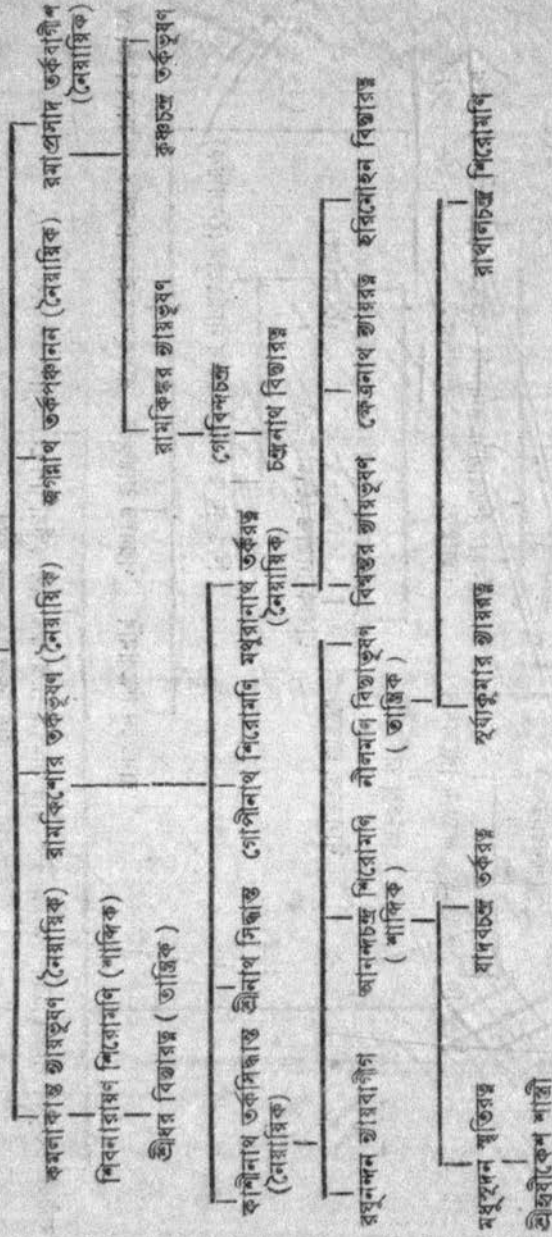 কমলাকান্ত ন্যায়ভূষণ (নৈয়ায়িক) রামকিশোর তর্কভূষণ (নৈয়ায়িক) জগন্নাথ তর্কপঞ্চানন (নৈয়ায়িক) রমাপ্রসাদ তর্কবাগীশ
(নৈয়ায়িক)
শিবনারায়ণ শিরোমণি (শাব্দিক)
শ্রীধর বিদ্যারত্ন ( তান্ত্রিক )
রামকিঙ্কর ন্যায়ভূষণ কৃষ্ণচন্দ্র তর্কভূষণ
গোবিন্দচন্দ্র
চন্দ্রনাথ বিদ্যারত্ন
কাশীনাথ তর্কসিদ্ধান্ত শ্রীনাথ সিদ্ধান্ত গোপীনাথ শিরোমণি মথুরানাথ তর্করত্ন
(নৈয়ায়িক) (নৈয়ায়িক)
রঘুনন্দন ন্যায়বাগীশ আনন্দচন্দ্র শিরোমণি নীলমণি বিদ্যাভূষণ বিশ্বম্ভর ন্যায়ভূষণ ক্ষেত্রনাথ ন্যায়রত্ন হরিমোহন বিদ্যারত্ন
( শাব্দিক ) ( তান্ত্রিক )
মধুসূদন স্মৃতিরত্ন যাদবচন্দ্র তর্করত্ন সূর্য্যকুমার ন্যায়রত্ন রাখালচন্দ্র শিরোমণি
শ্রীহৃষীকেশ শাস্ত্রী